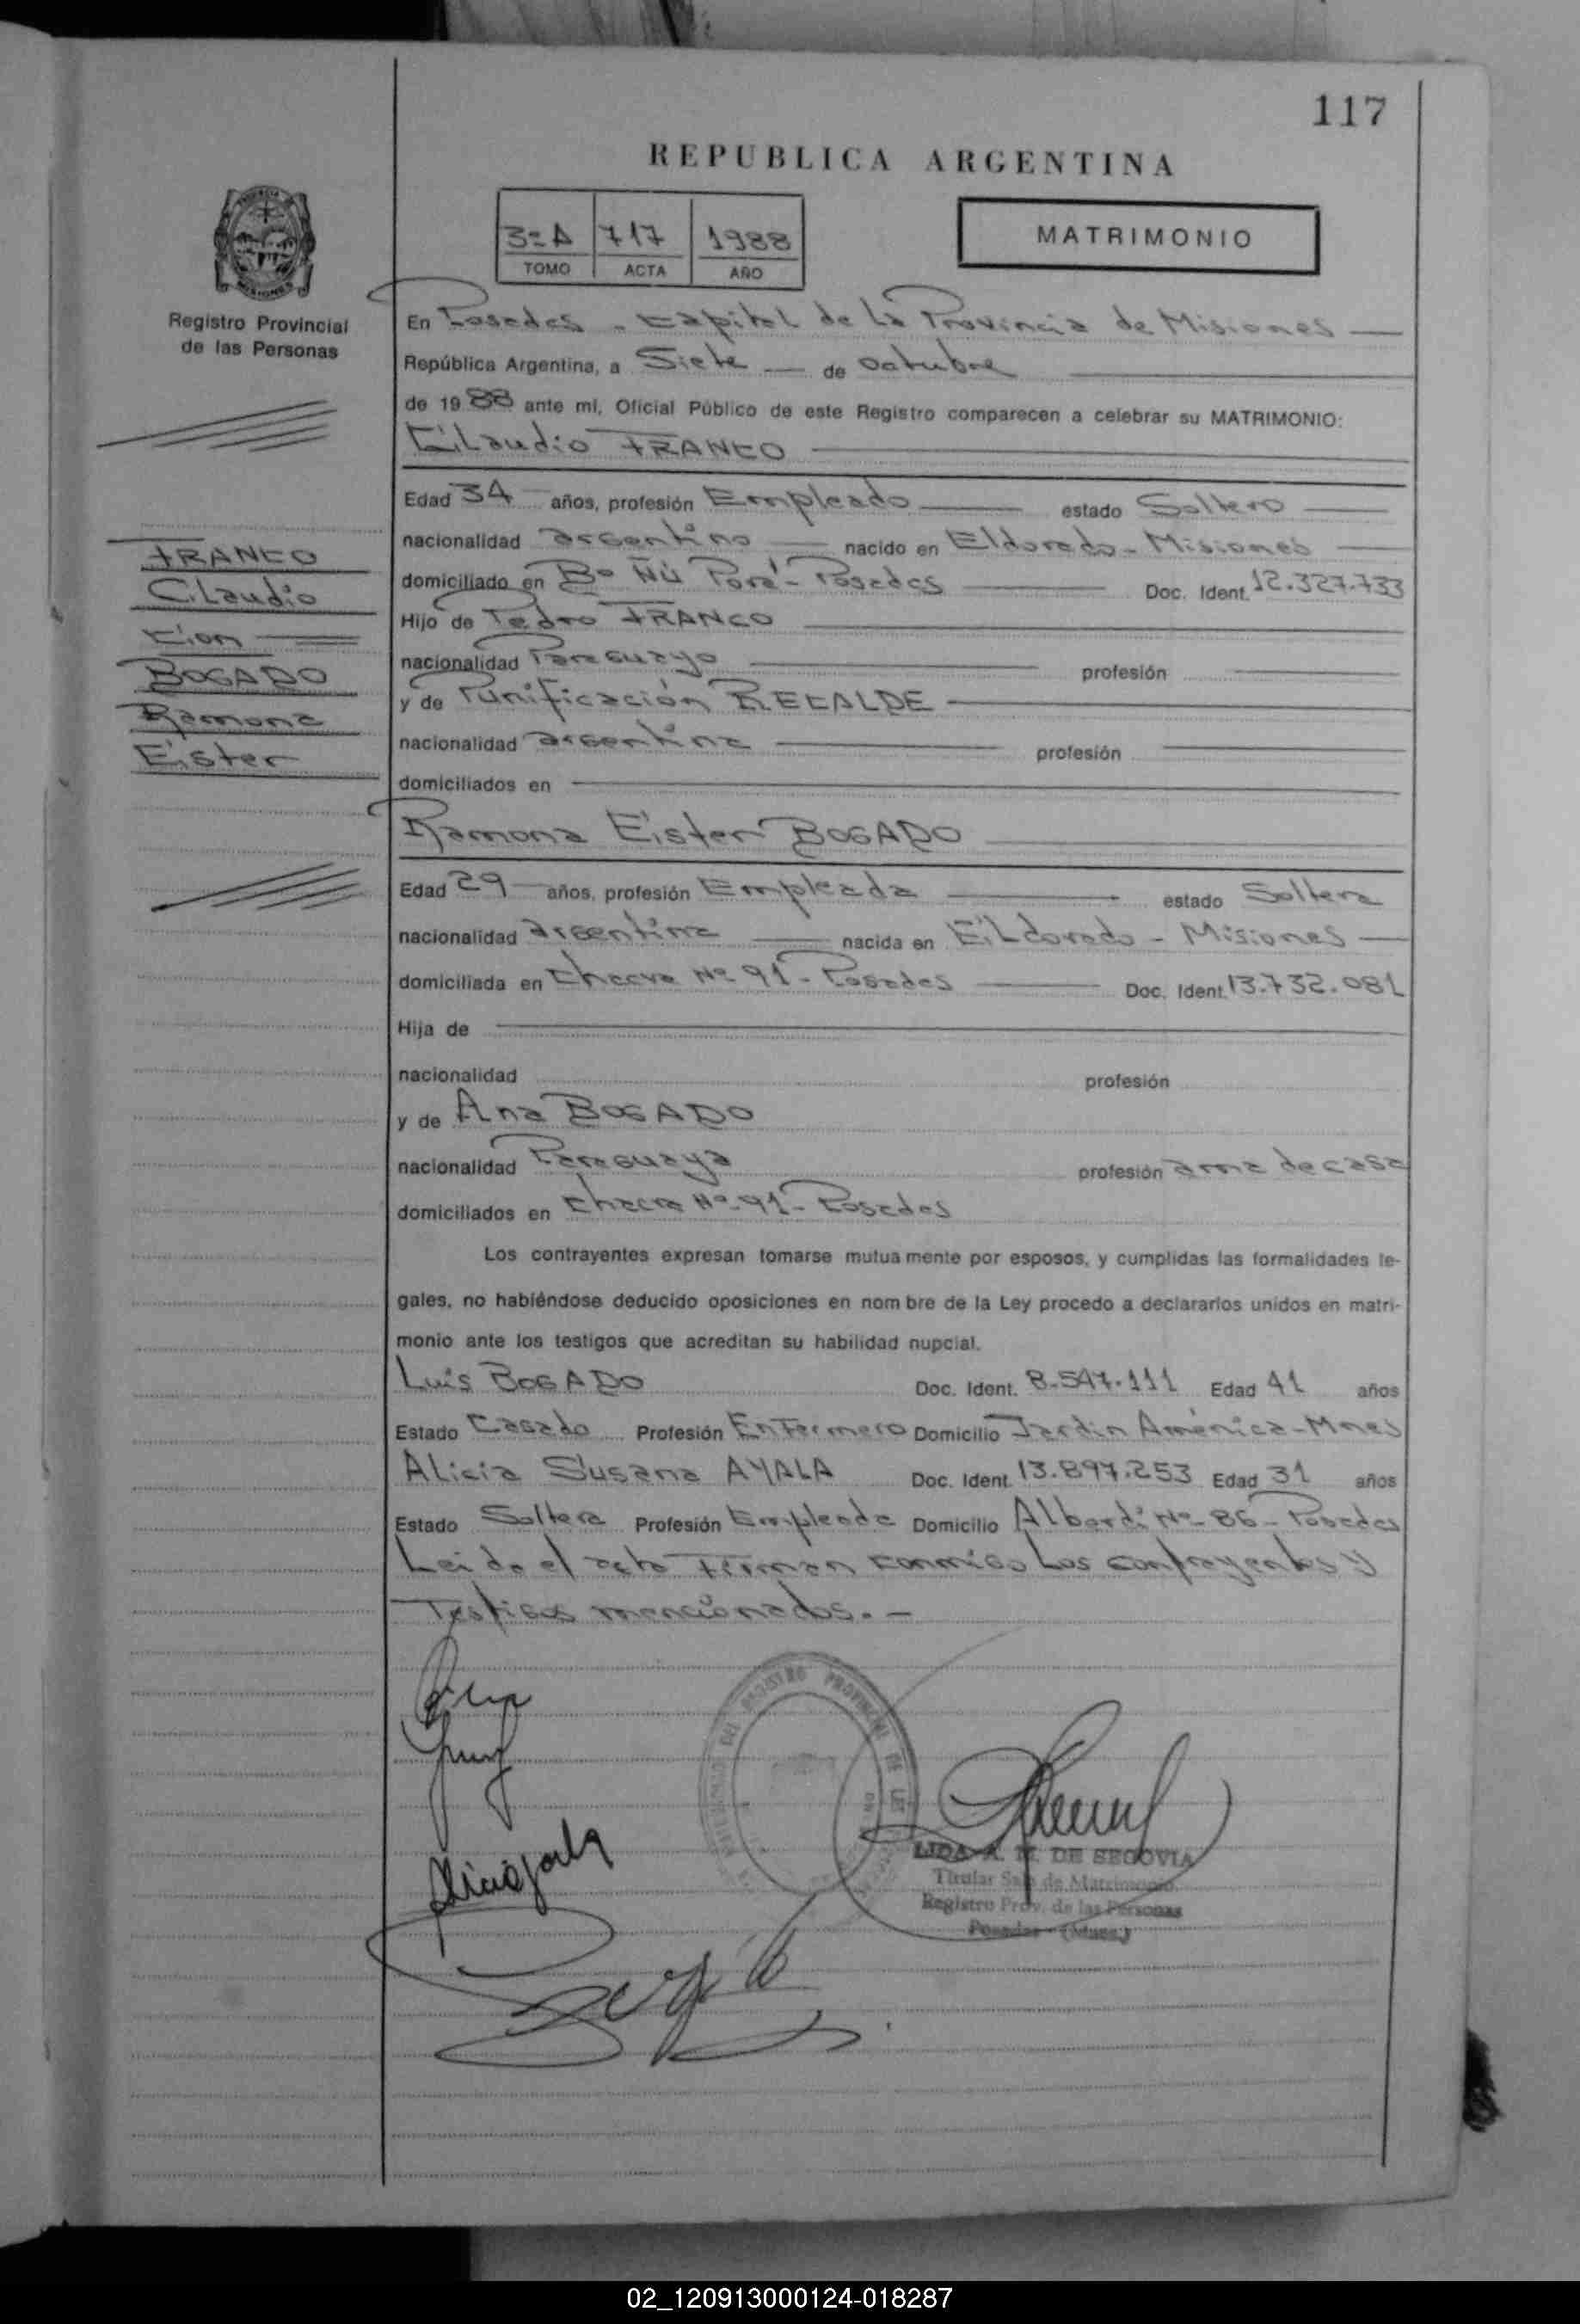 117
REPUBLICA ARGENTINA
3º A 717 1988
TOMO ACTA AÑO
MATRIMONIO
Registro Provincial
de las Personas
FRANCO
Claudio
con
BOGADO
Ramona
Ester
En Posadas - Capital de la Provincia de Misiones
República Argentina, a Siete de octubre
de 1988 ante mí, Oficial Público de este Registro comparecen a celebrar su MATRIMONIO:
Claudio FRANCO
Edad 34 años, profesión Empleado estado Soltero
nacionalidad argentino nacido en Eldorado - Misiones
domiciliado en Bº Ñú Porá - Posadas Doc. Ident. 12.327.733
Hijo de Pedro FRANCO
nacionalidad Paraguayo profesión
y de Purificación RECALDE
nacionalidad argentina profesión
domiciliados en
Ramona Ester BOGADO
Edad 29 años, profesión Empleada estado Soltera
nacionalidad argentina nacida en Eldorado - Misiones
domiciliada en Chacra Nº 91 - Posadas Doc. Ident. 13.732.081
Hija de
nacionalidad profesión
y de Ana BOGADO
nacionalidad Paraguaya profesión ama de casa
domiciliados en Chacra Nº 91 - Posadas
Los contrayentes expresan tomarse mutua mente por esposos, y cumplidas las formalidades le-
gales, no habiéndose deducido oposiciones en nom bre de la Ley procedo a declararlos unidos en matri-
monio ante los testigos que acreditan su habilidad nupcial.
Luis BOGADO Doc. Ident. 8.547.111 Edad 41 años
Estado Casado Profesión Enfermero Domicilio Jardin América - Mnes
Alicia Susana AYALA Doc. Ident. 13.897.253 Edad 31 años
Estado Soltera Profesión Empleada Domicilio Alberdi Nº 86 - Posadas
Leida el acta Firman conmigo Los contrayentes y
Testigos mencionados. -
REGISTRO PROVINCIAL DE LAS
LIDA A. M. DE SEGOVIA
Titular Sala de Matrimonio
Registro Prov. de las Personas
Posadas - (Mnes.)
02_120913000124-018287